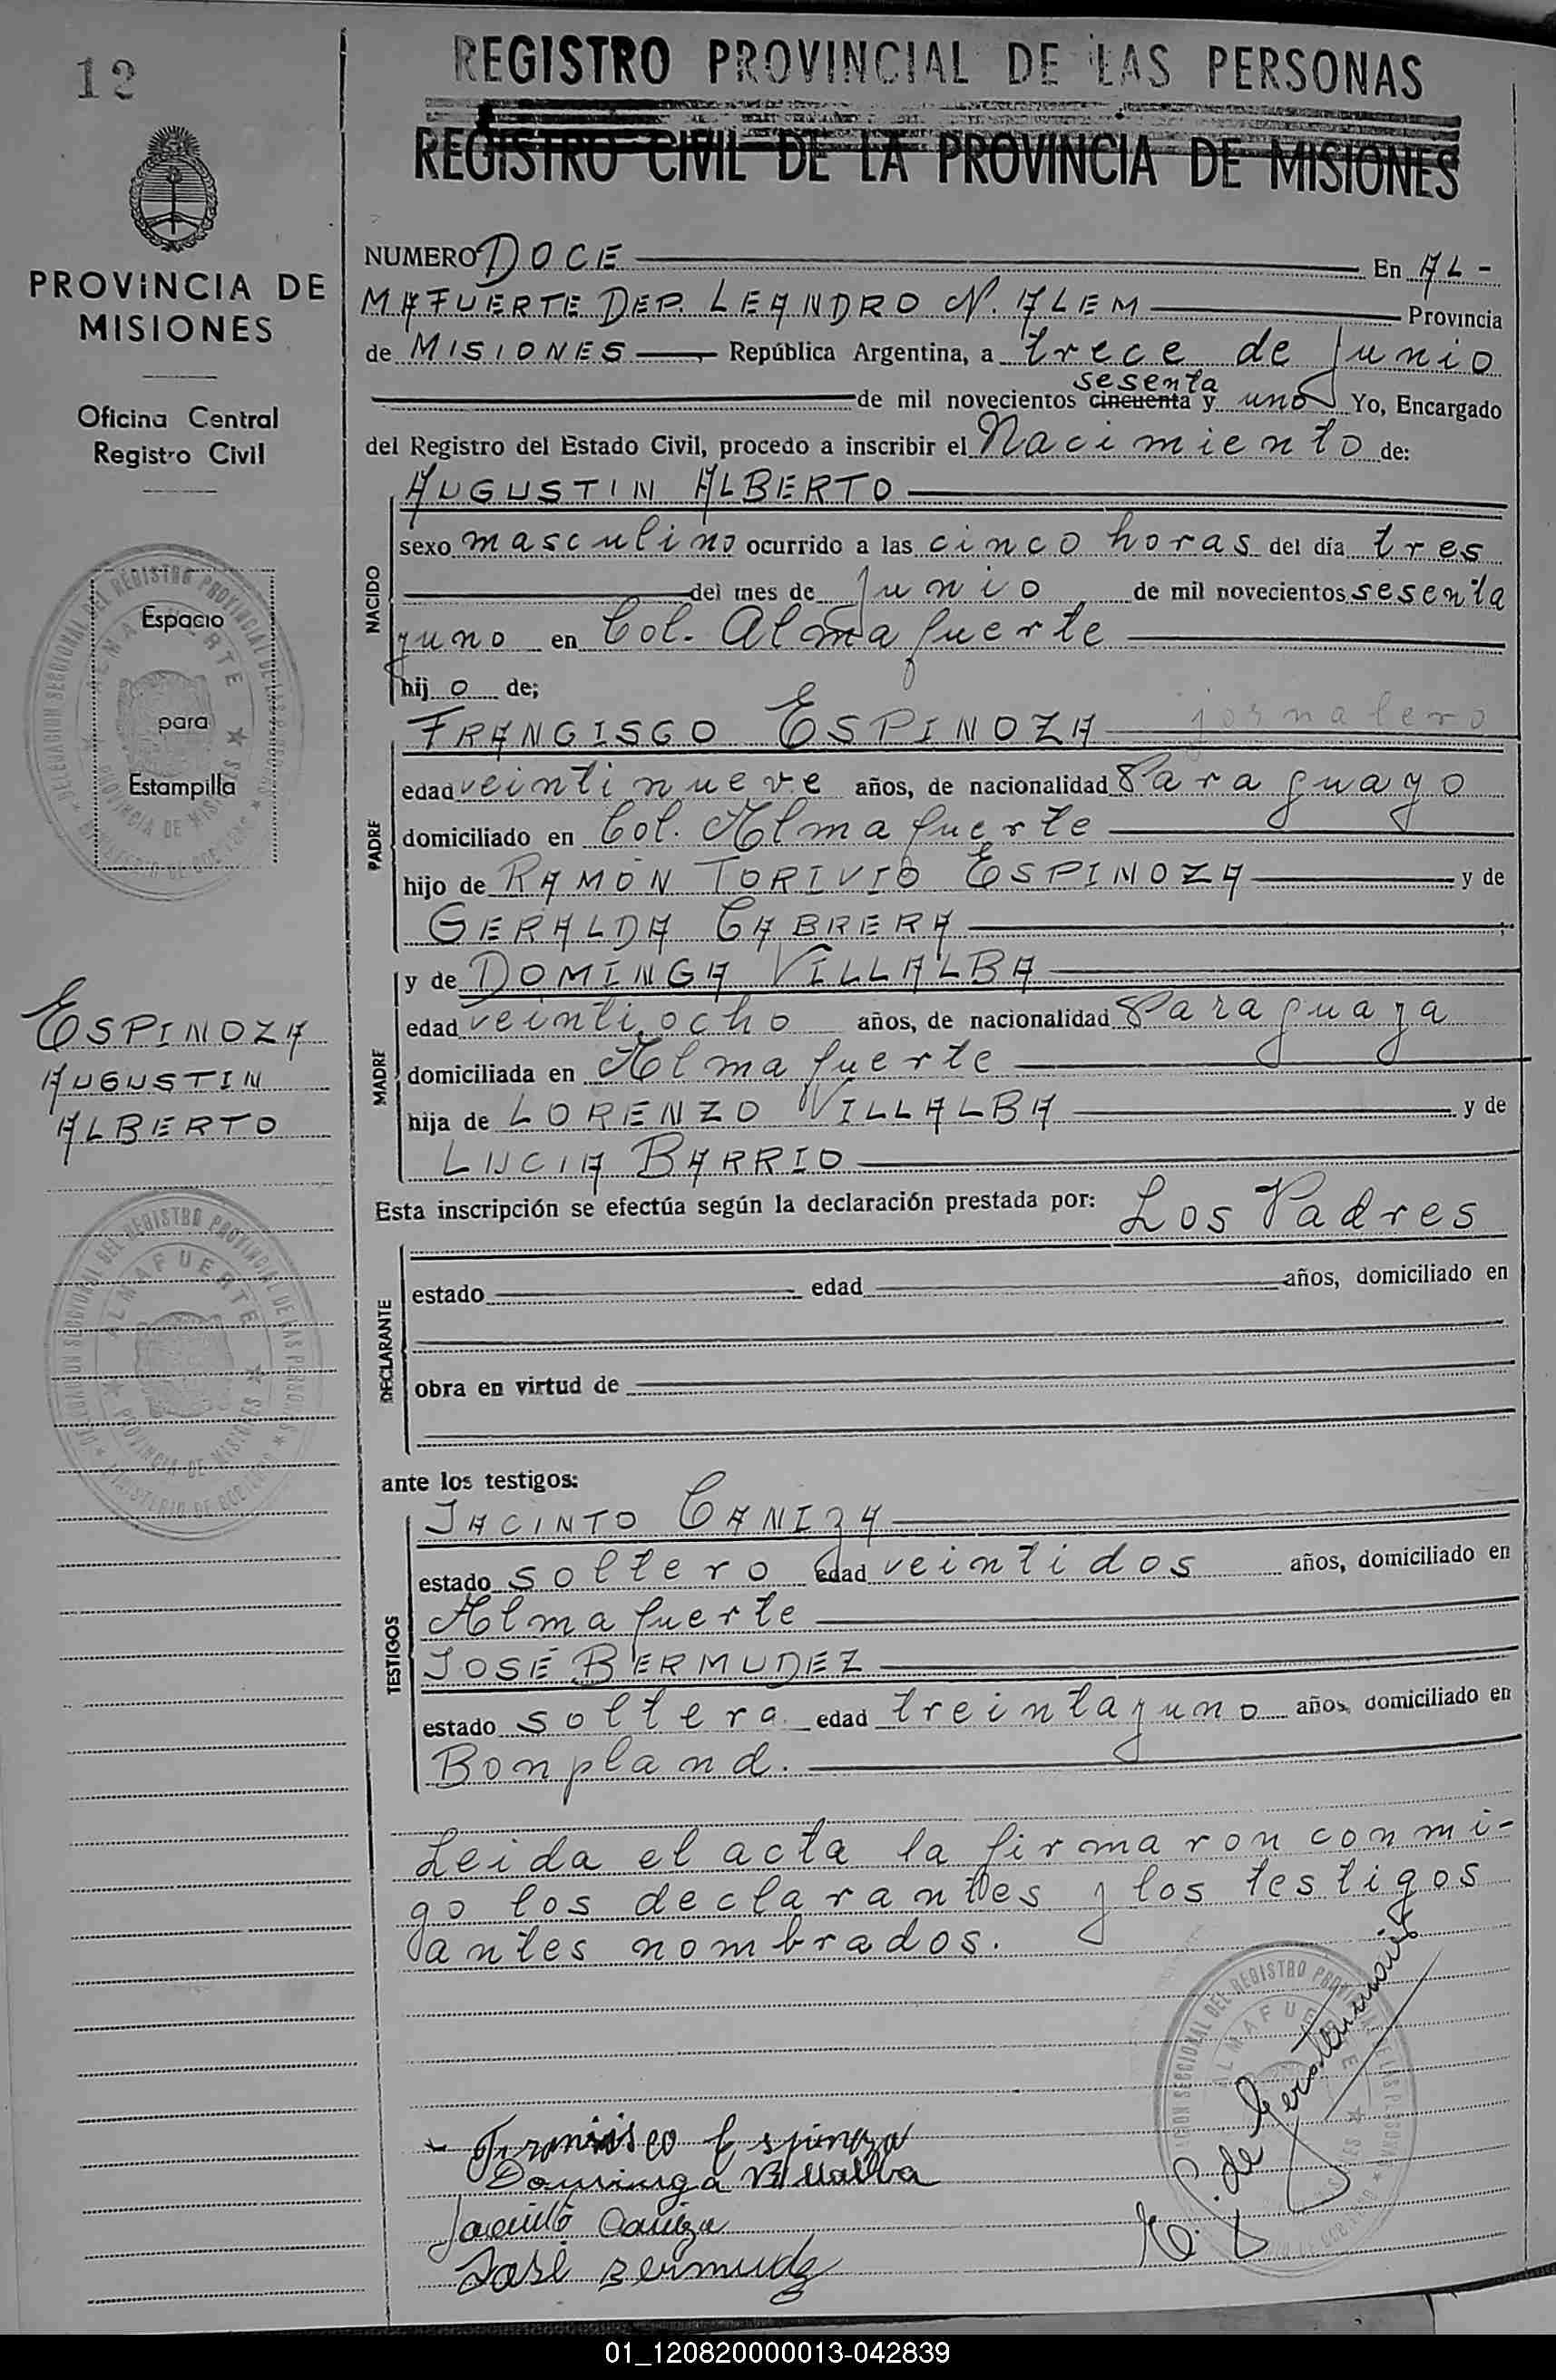 12
REGISTRO PROVINCIAL DE LAS PERSONAS
REGISTRO CIVIL DE LA PROVINCIA DE MISIONES
PROVINCIA DE
MISIONES
Oficina Central
Registro Civil
NUMERO DOCE En AL-
MAFUERTE DEP. LEANDRO N. ALEM Provincia
de MISIONES República Argentina, a trece de junio
sesenta
de mil novecientos cincuenta y uno Yo, Encargado
del Registro del Estado Civil, procedo a inscribir el Nacimiento de:
NACIDO
AUGUSTIN ALBERTO
sexo masculino ocurrido a las cinco horas del día tres
del mes de junio de mil novecientos sesenta
y uno en Col. Almafuerte
hijo de;
Espacio
para
Estampilla
DELEGACION SECCIONAL DEL REGISTRO PROVINCIAL DE LAS PERSONAS
ALMAFUERTE
PROVINCIA DE MISIONES
MINISTERIO DE GOBIERNO
PADRE
FRANCISCO ESPINOZA jornalero
edad veintinueve años, de nacionalidad Paraguayo
domiciliado en Col. Almafuerte
hijo de RAMÓN TORIVIO ESPINOZA y de
GERALDA CABRERA
MADRE
y de DOMINGA VILLALBA
edad veintiocho años, de nacionalidad Paraguaya
domiciliada en Almafuerte
hija de LORENZO VILLALBA y de
LUCIA BARRIO
ESPINOZA
AUGUSTIN
ALBERTO
DELEGACION SECCIONAL DEL REGISTRO PROVINCIAL DE LAS PERSONAS
ALMAFUERTE
PROVINCIA DE MISIONES
MINISTERIO DE GOBIERNO
Esta inscripción se efectúa según la declaración prestada por: Los Padres
DECLARANTE
estado edad años, domiciliado en
obra en virtud de
ante los testigos:
TESTIGOS
JACINTO CANIZA
estado soltero edad veintidos años, domiciliado en
Almafuerte
JOSÉ BERMUDEZ
estado soltera edad treinta y uno años, domiciliado en
Bonpland.
Leida el acta la firmaron conmi-
go los declarantes y los testigos
antes nombrados.
Francisco Espinoza
Dominga Villalva
Jacinto Caniza
José Bermudez
01_120820000013-042839